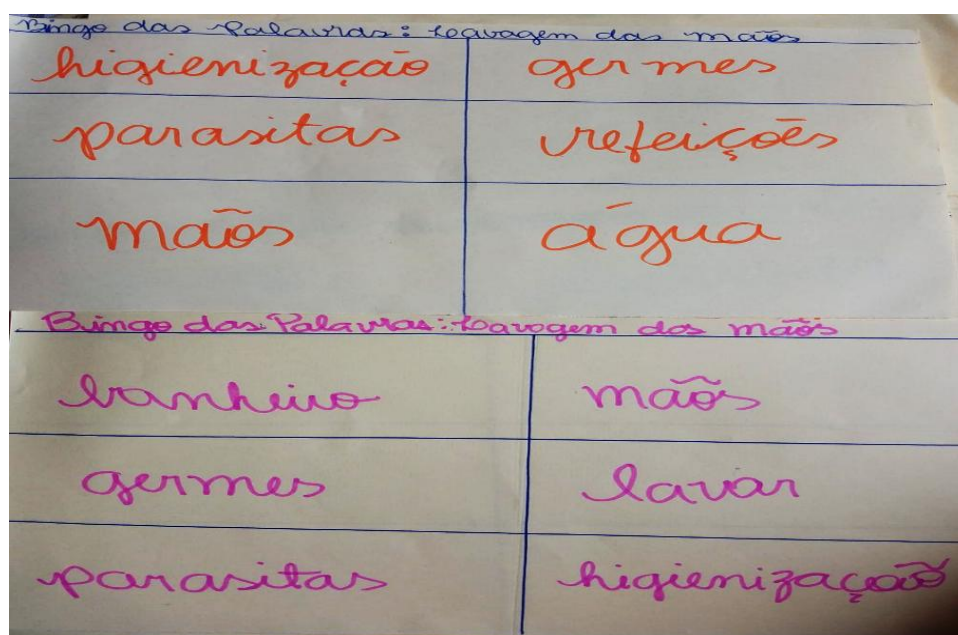 Bingo das Palavras: Lavagem das mãos
higienização germes
parasitas refeições
mãos água
Bingo das Palavras: Lavagem das mãos
banheiro mãos
germes lavar
parasitas higienização